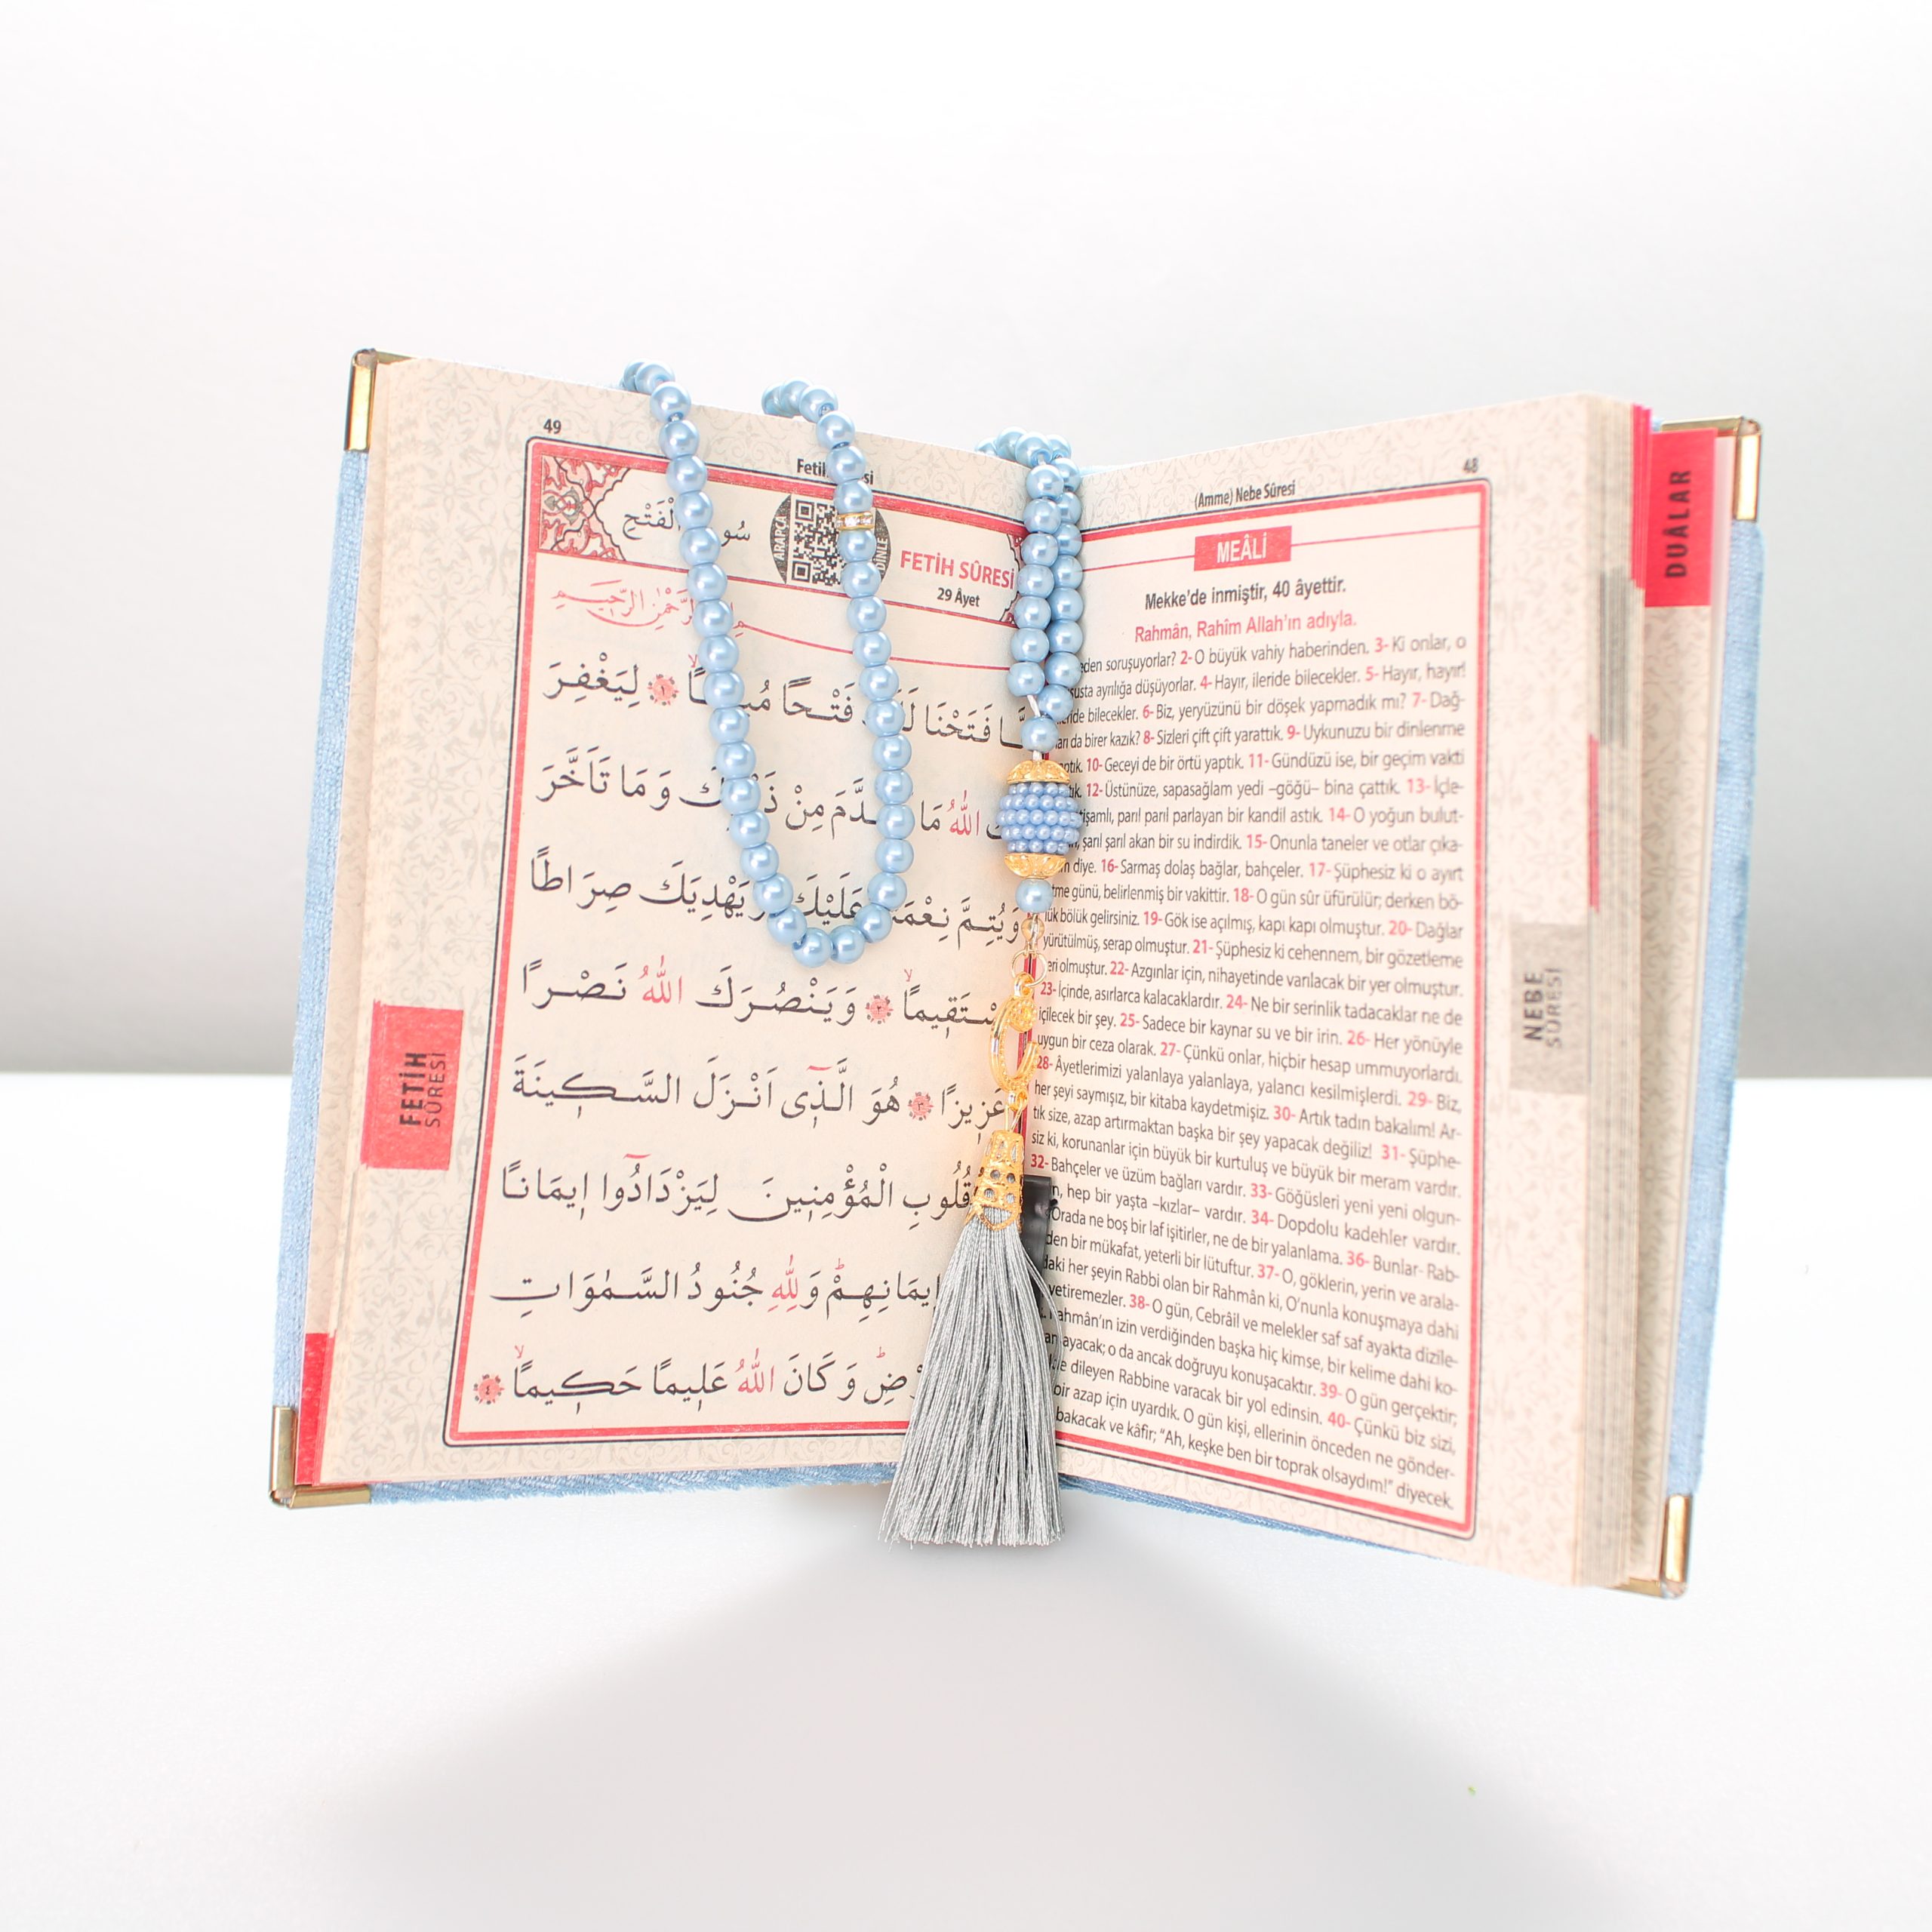 49
Fetih
سُو الْفَتْحِ
ARAPÇA
DİNLE
FETİH SÛRESİ
29 Âyet
الرَّحْمٰنِ الرَّحِيمِ
فَتَحْنَا فَتْحًا لِيَغْفِرَ
اللّٰهُ مَا مِنْ وَمَا تَاَخَّرَ
وَيُتِمَّ عَلَيْكَ وَيَهْدِيَكَ صِرَاطًا
وَيَنْصُرَكَ اللّٰهُ نَصْرًا
عَزِيزًا ﴿٣﴾ هُوَ الَّذٖٓى اَنْزَلَ السَّكٖينَةَ
قُلُوبِ الْمُؤْمِنٖينَ لِيَزْدَادُٓوا اٖيمَانًا
اٖيمَانِهِمْ وَلِلّٰهِ جُنُودُ السَّمٰوَاتِ
وَكَانَ اللّٰهُ عَلٖيمًا حَكٖيمًا ﴿٤﴾
FETİH
SÛRESİ
48
(Amme) Nebe Sûresi
MEÂLİ
Mekke’de inmiştir, 40 âyettir.
Rahmân, Rahîm Allah’ın adıyla.
soruşuyorlar? 2- O büyük vahiy haberinden. 3- Ki onlar, o
ayrılığa düşüyorlar. 4- Hayır, ileride bilecekler. 5- Hayır, hayır!
bilecekler. 6- Biz, yeryüzünü bir döşek yapmadık mı? 7- Dağ-
da birer kazık? 8- Sizleri çift çift yarattık. 9- Uykunuzu bir dinlenme
10- Geceyi de bir örtü yaptık. 11- Gündüzü ise, bir geçim vakti
12- Üstünüze, sapasağlam yedi –göğü– bina çattık. 13- İçle-
parıl parıl parlayan bir kandil astık. 14- O yoğun bulut-
şarıl şarıl akan bir su indirdik. 15- Onunla taneler ve otlar çıka-
diye. 16- Sarmaş dolaş bağlar, bahçeler. 17- Şüphesiz ki o ayırt
günü, belirlenmiş bir vakittir. 18- O gün sûr üfürülür; derken bö-
lük bölük gelirsiniz. 19- Gök ise açılmış, kapı kapı olmuştur. 20- Dağlar
yürütülmüş, serap olmuştur. 21- Şüphesiz ki cehennem, bir gözetleme
olmuştur. 22- Azgınlar için, nihayetinde varılacak bir yer olmuştur.
23- İçinde, asırlarca kalacaklardır. 24- Ne bir serinlik tadacaklar ne de
içilecek bir şey. 25- Sadece bir kaynar su ve bir irin. 26- Her yönüyle
uygun bir ceza olarak. 27- Çünkü onlar, hiçbir hesap ummuyorlardı.
28- Âyetlerimizi yalanlaya yalanlaya, yalancı kesilmişlerdi. 29- Biz,
her şeyi saymışız, bir kitaba kaydetmişiz. 30- Artık tadın bakalım! Ar-
tık size, azap artırmaktan başka bir şey yapacak değiliz! 31- Şüphe-
siz ki, korunanlar için büyük bir kurtuluş ve büyük bir meram vardır.
32- Bahçeler ve üzüm bağları vardır. 33- Göğüsleri yeni yeni olgun-
hep bir yaşta –kızlar– vardır. 34- Dopdolu kadehler vardır.
Orada ne boş bir laf işitirler, ne de bir yalanlama. 36- Bunlar- Rab-
den bir mükafat, yeterli bir lütuftur. 37- O, göklerin, yerin ve arala-
daki her şeyin Rabbi olan bir Rahmân ki, O’nunla konuşmaya dahi
38- O gün, Cebrâil ve melekler saf saf ayakta dizile-
Rahmân’ın izin verdiğinden başka hiç kimse, bir kelime dahi ko-
o da ancak doğruyu konuşacaktır. 39- O gün gerçektir;
dileyen Rabbine varacak bir yol edinsin. 40- Çünkü biz sizi,
bir azap için uyardık. O gün kişi, ellerinin önceden ne gönder-
bakacak ve kâfir; “Ah, keşke ben bir toprak olsaydım!” diyecek.
NEBE
SÛRESİ
DUÂLAR